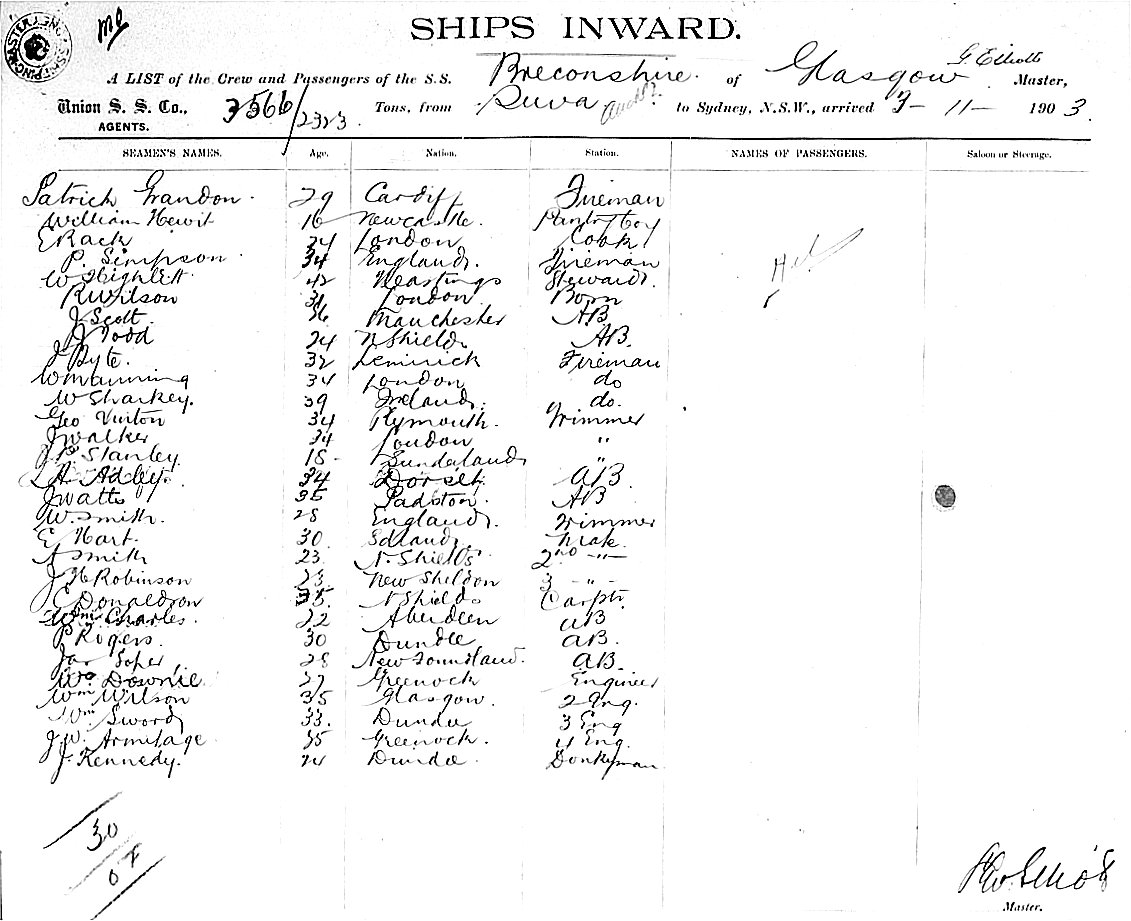 SHIPS INWARD.
A LIST of the Crew and Passengers of the S.S. Breconshire. of Glasgow G. Elliott Master,
Union S. S. Co., 3566/2323 Tons, from Suva to Sydney, N.S.W., arrived 3 - 11 - 1903.
AGENTS.
SEAMEN'S NAMES. Age. Nation. Station. NAMES OF PASSENGERS. Saloon or Steerage.
Patrick Grandon. 29 Cardiff Fireman
William Hewit 16 Newcastle. Pantry boy
E Rack London Cook
P. Simpson 34 England. Fireman
W Highlett 42 Heastings Steward.
R Wilson London Bosn
J Scott 36 Manchester AB
J Todd 24 N Shields AB.
J Byte. 32 Lemrick Fireman
W Manning 34 London do
W Sharkey. 39 Ireland. do.
Geo 34 Plymouth. Trimmer
J Walker 34 London "
J. P. Stanley 18 Sunderland "
A. Adley 34 Dorset. AB
J Watts 35 Padston. AB
W. Smith. 28 England. Trimmer
E Hart. 30 Mate.
A Smith 23 N. Shields 2nd "
J H Robinson 23 New Sheldon 3 "
J C Donaldson 35. N Shields Carptr.
Wm Charles. 22 Aberdeen AB
P Rogers. 30 Dundee AB.
Jas 28 Newfoundland. AB.
Wm Downie. 27 Greenock Engineer
Wm Wilson 35 Glasgow. 2 Eng.
Wm Sword 33. Dundee 3 Eng
J. W. Armitage. 25 Greenock. 4 Eng.
J. Kennedy. 24 Dundee. Donkyman
30
Master.